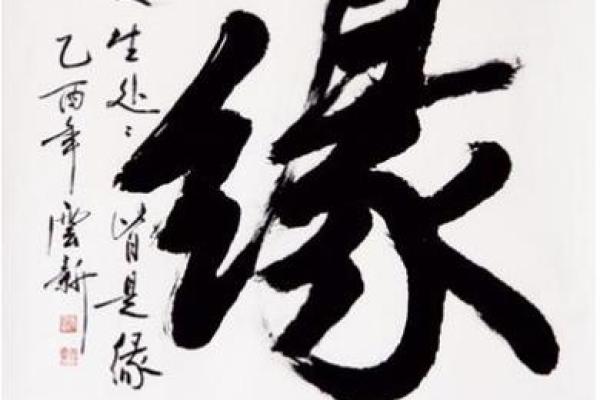 缘
生处处皆是缘
乙酉年 云新